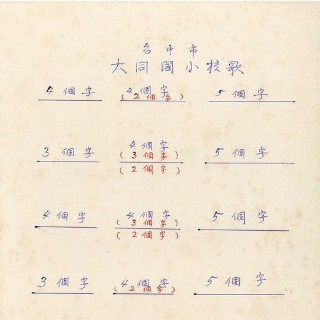 台中市
大同國小校歌
4個字 4個字 5個字
(2個字)
3個字 4個字 5個字
(3個字)
(2個字)
4個字 4個字 5個字
(3個字)
(2個字)
3個字 4個字 5個字
(2個字)